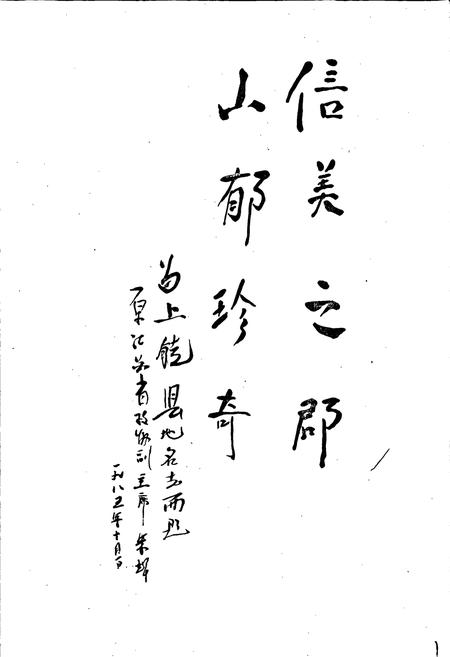 信美之郡
山郁珍奇
为上饶县地名志而题
原江苏省政协副主席 朱辉
一九八五年十月一日